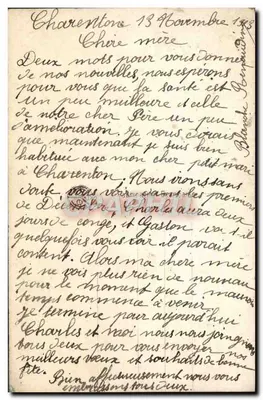 Charenton 13 Novembre
Chère mère
Deux mots pour vous donner
de nos nouvelles, nous espérons
pour vous que la santé est
un peu meilleure et celle
de notre cher Père un peu
d'amélioration. je vous
que maintenant je suis bien
habituée avec mon cher petit mari
à Charenton, Nous irons sans
dout vous voir dans les premiers
de aura deux
jours de congé, et Gaston va t il
quelquefois vous voir il parait
content. Alors ma chère mère
je ne vois plus rien de nouveau
pour le moment que le mauvais
temps commence à venir
je termine pour aujourd'hui
Charles et moi nous nous joignons
tous deux pour vous envoyer nos
meilleurs vœux et souhaits de bonne
fête.
Bien affectueusement nous vous
embrassons tous deux.
Blanche